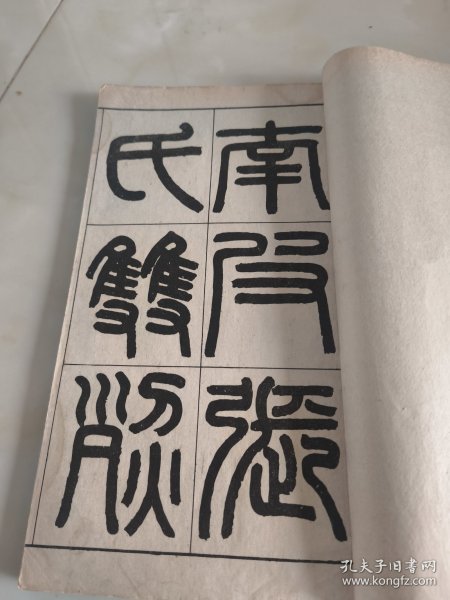 南皮張
氏雙烈
孔夫子旧书网
www.kongfz.com